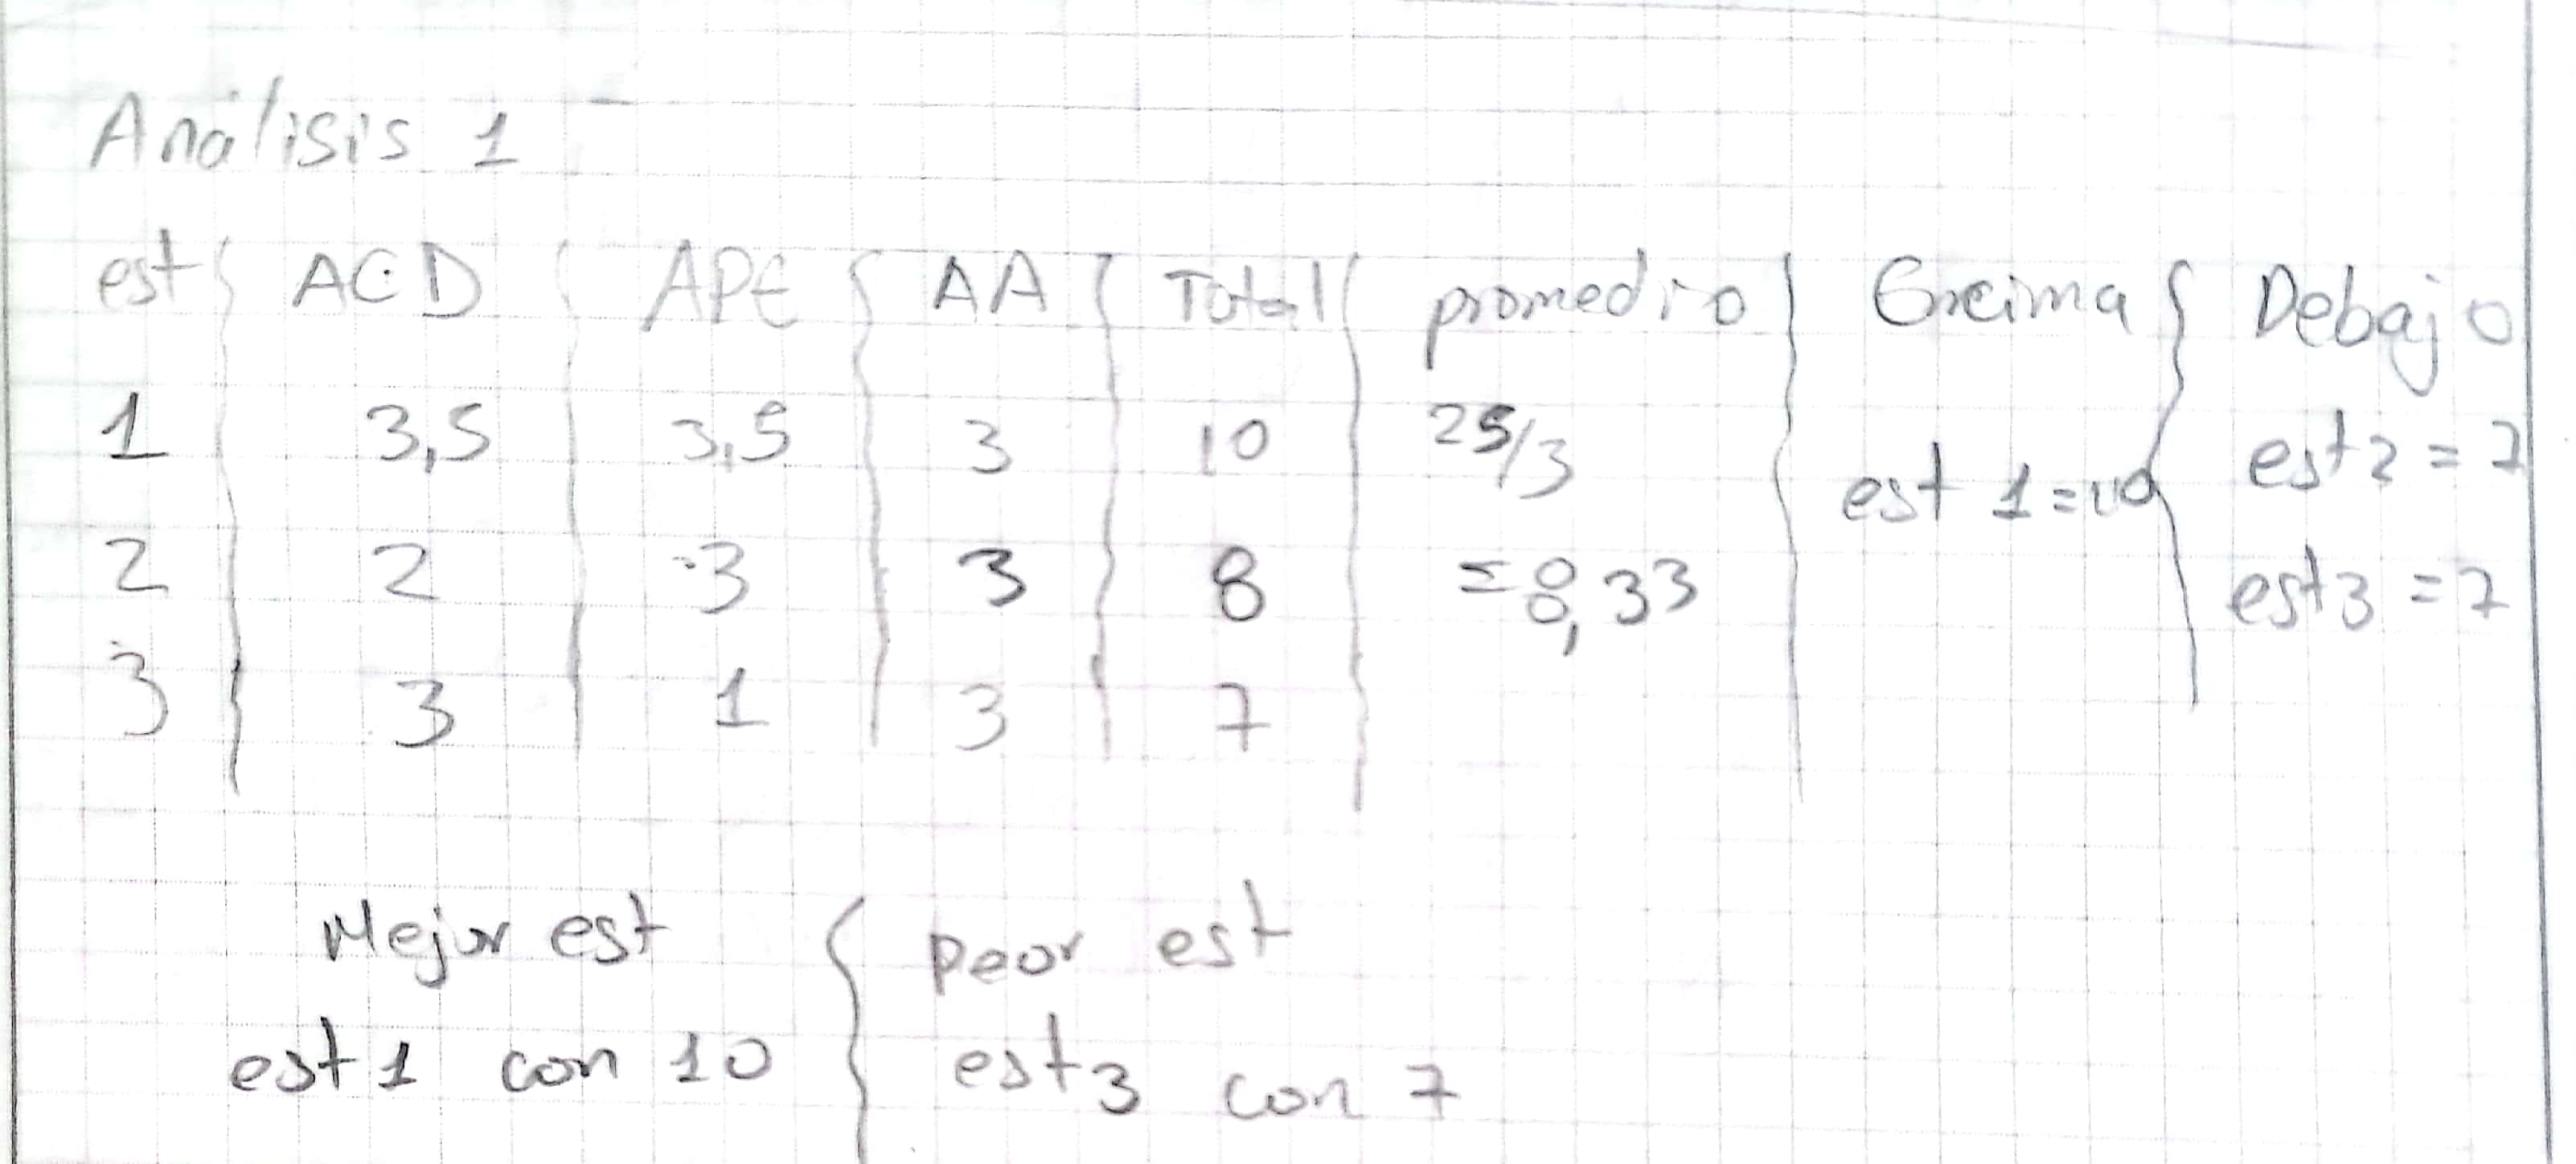 Análisis 1
est ACD APE AA Total promedio Encima Debajo
1 3,5 3,5 3 10 25/3 est 1=10 est2 = 7
2 2 3 3 8 =8,33 est3 = 7
3 3 1 3 7
Mejor est peor est
est1 con 10 est3 con 7